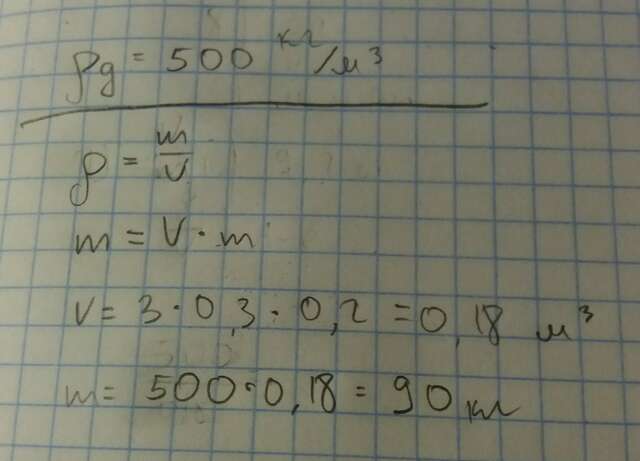 ρg = 500 кг/м³
ρ = m/V
m = V · m
V = 3 · 0,3 · 0,2 = 0,18 м³
m = 500 · 0,18 = 90 кг